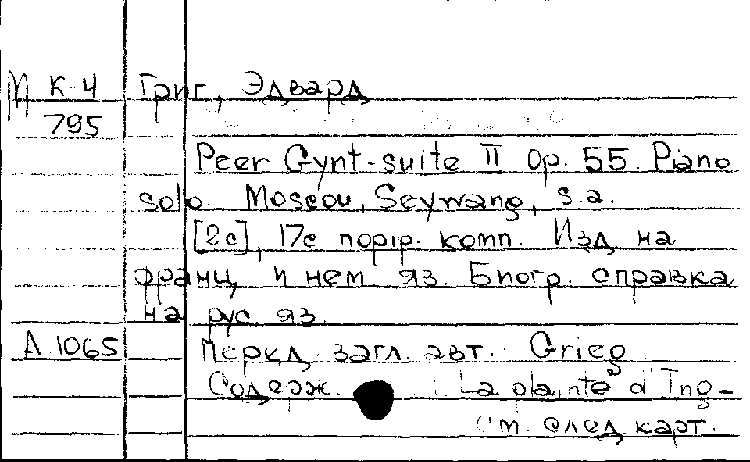 М К-4 Григ, Эдвард
795
Peer Gynt-suite II Op. 55. Piano
solo Moscou, Seywang, s.a.
[2с], 17с портр. комп. Изд на
франц, и нем яз. Биогр. справка
на рус яз.
А 1065 Перед загл. авт. Grieg
Содерж. : La plainte d'Ing-
См. след карт.